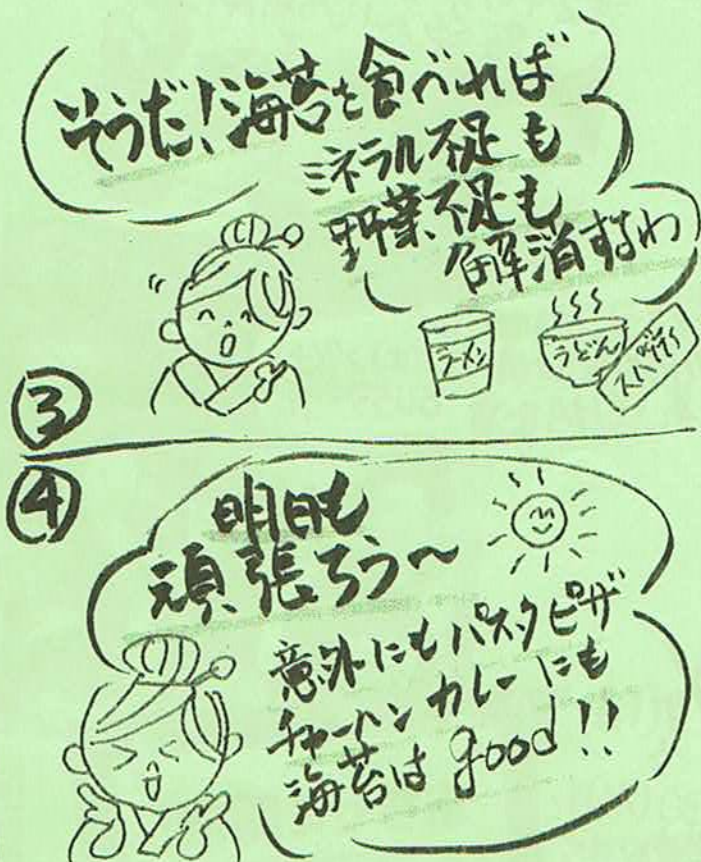 そうだ!海苔を食べれば
ミネラル不足も
野菜不足も
解消するわ
ラーメン
うどん
スパゲティ
③
④
明日も
頑張ろう〜
意外にもパスタピザ
チャーハンカレーにも
海苔は good!!